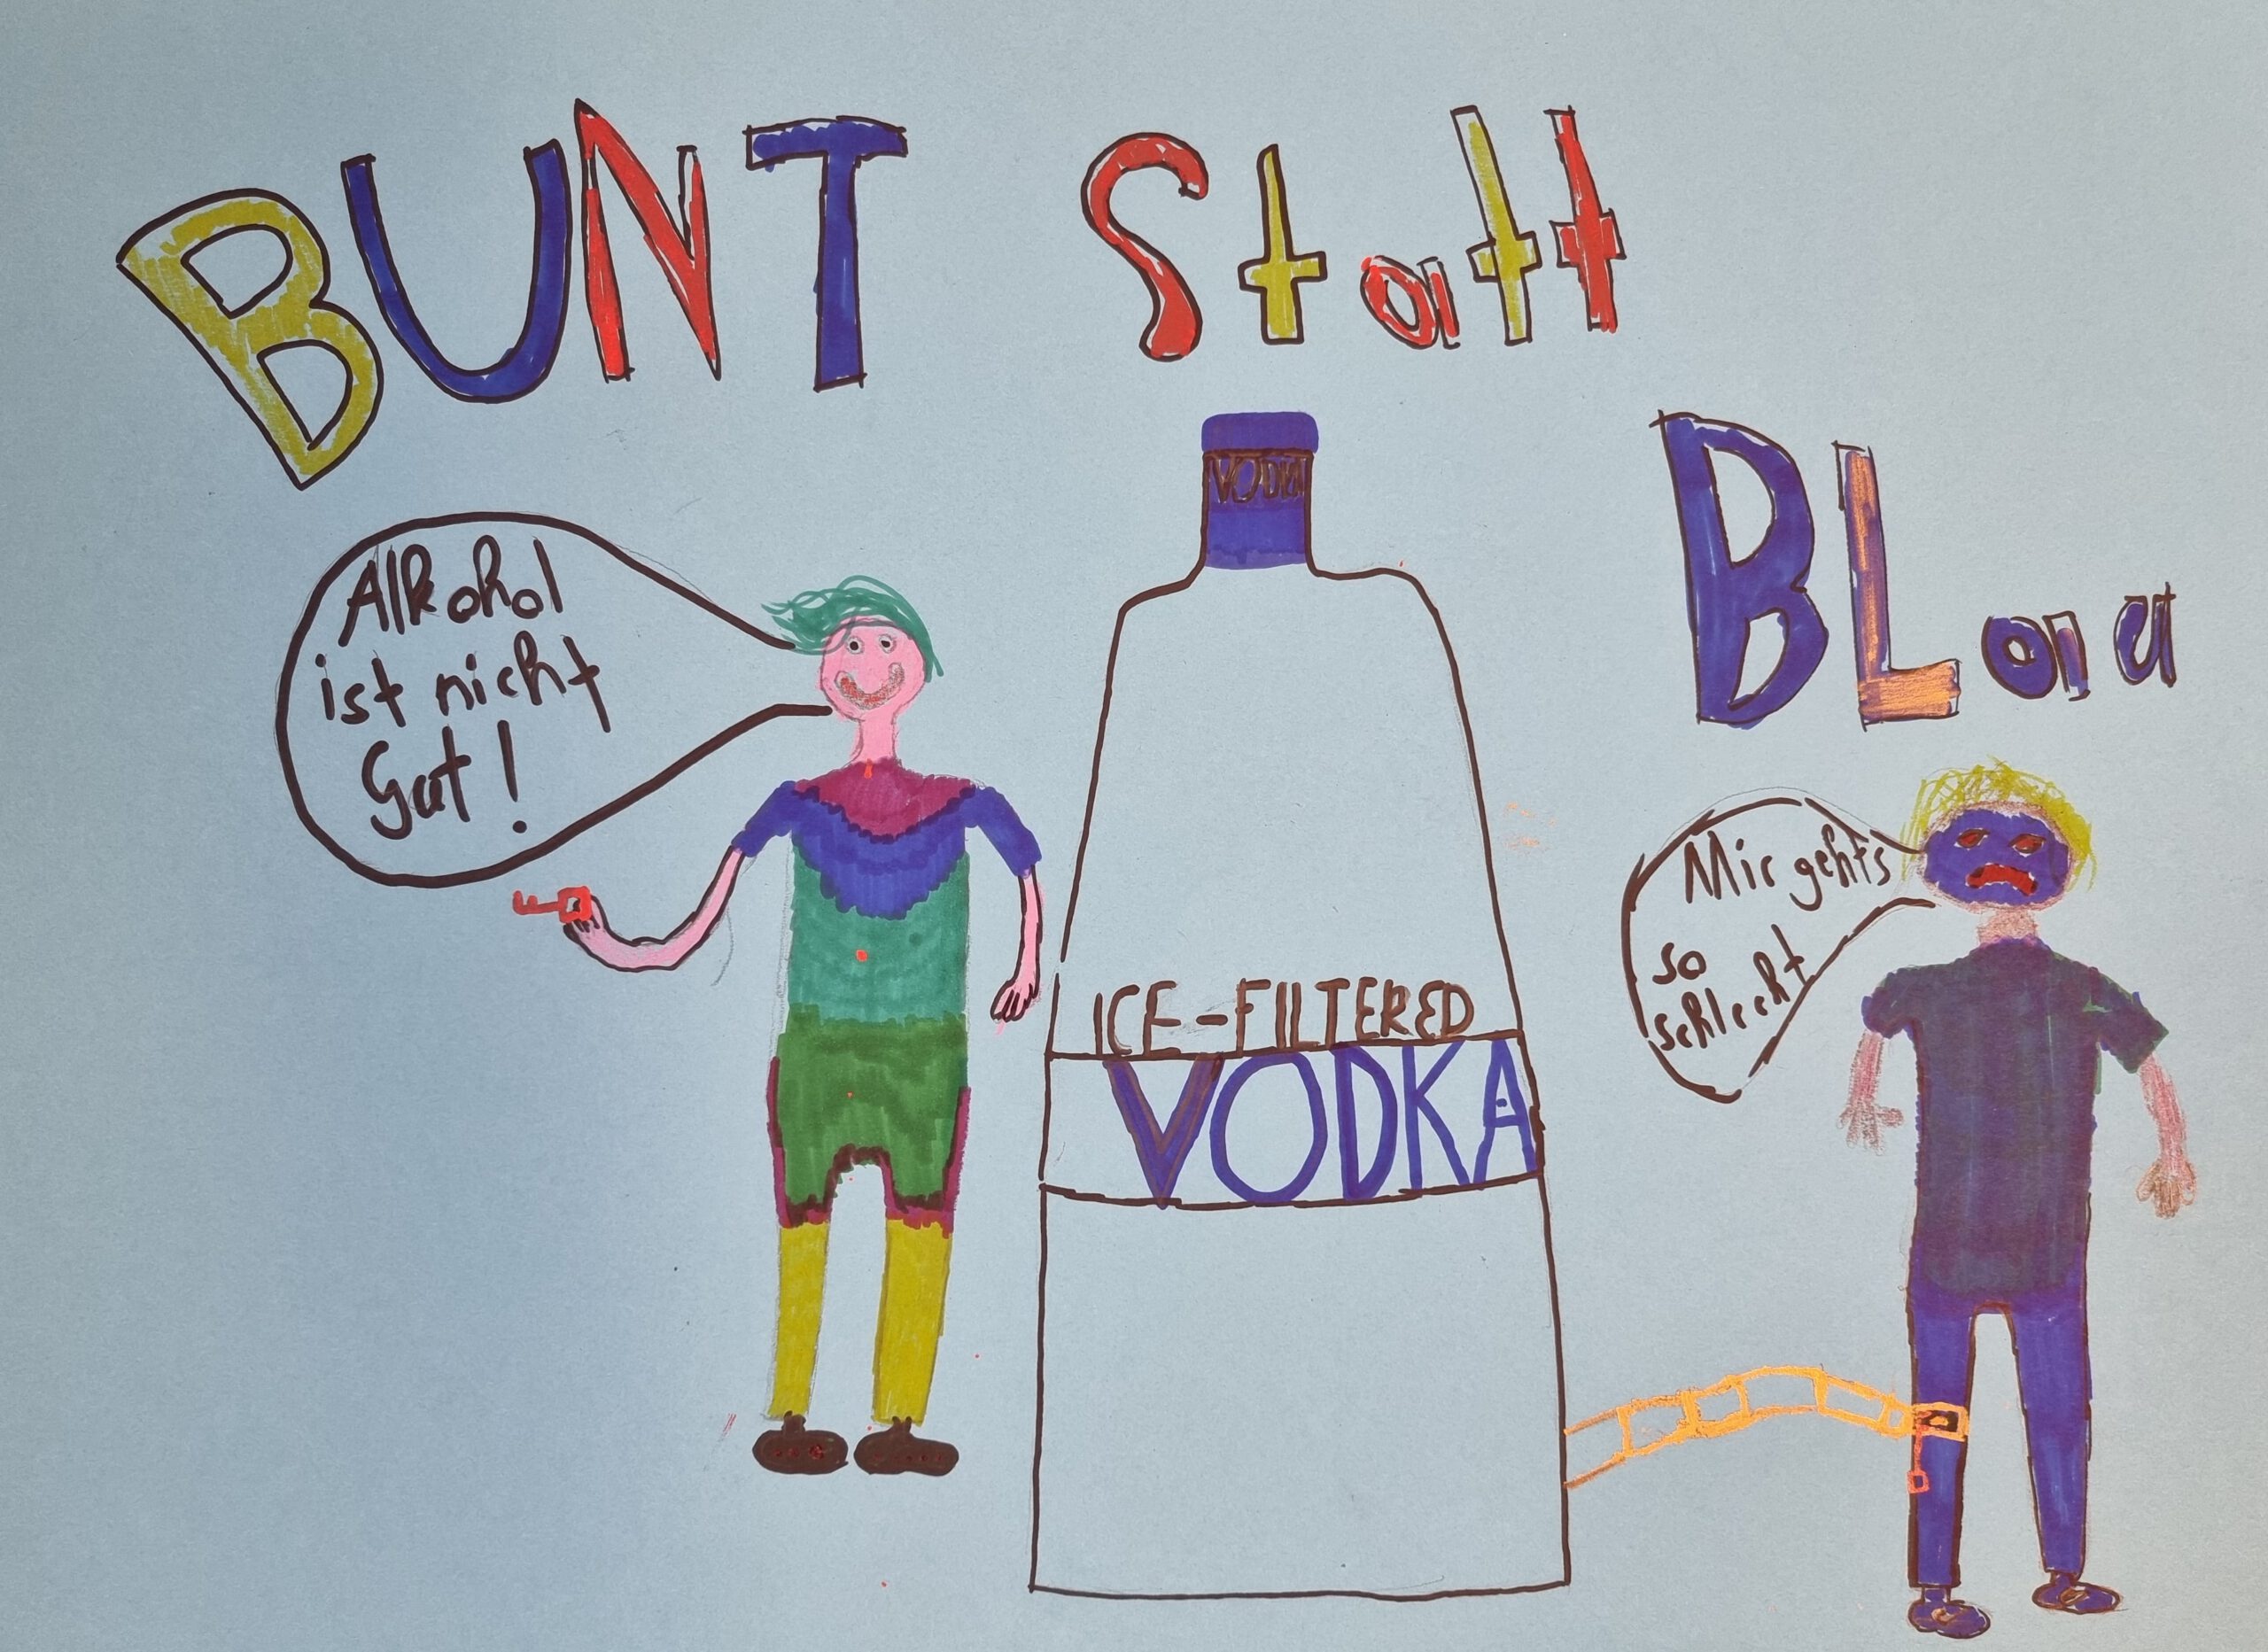 BUNT Statt
BLau
Alkohol
ist nicht
Gut!
VODKA
ICE-FILTERED
VODKA
Mir geht's
so
schlecht